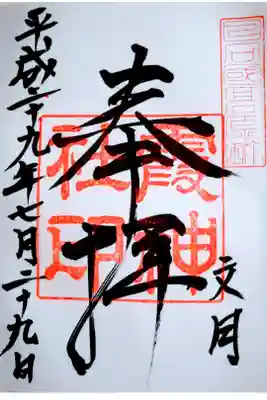 奉拝
霞神
社印
文月
平成二十九年七月二十九日